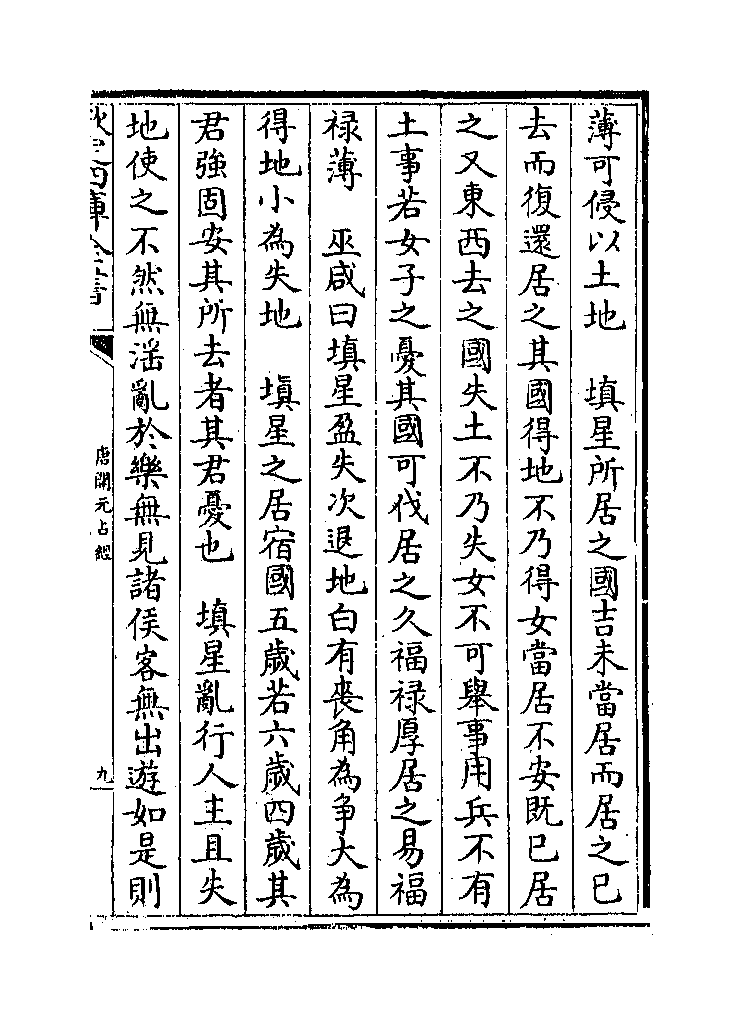 薄可侵以土地　填星所居之國吉未當居而居之已
去而復還居之其國得地不乃得女當居不安既已居
之又東西去之國失土不乃失女不可舉事用兵不有
土事若女子之憂其國可伐居之久福祿厚居之易福
祿薄　巫咸曰填星盈失次退地白有喪角為爭大為
得地小為失地　填星之居宿國五歲若六歲四歲其
君強固安其所去者其君憂也　填星亂行人主且失
地使之不然無滛亂於樂無見諸侯客無出遊如是則
欽定四庫全書
唐開元占經
九